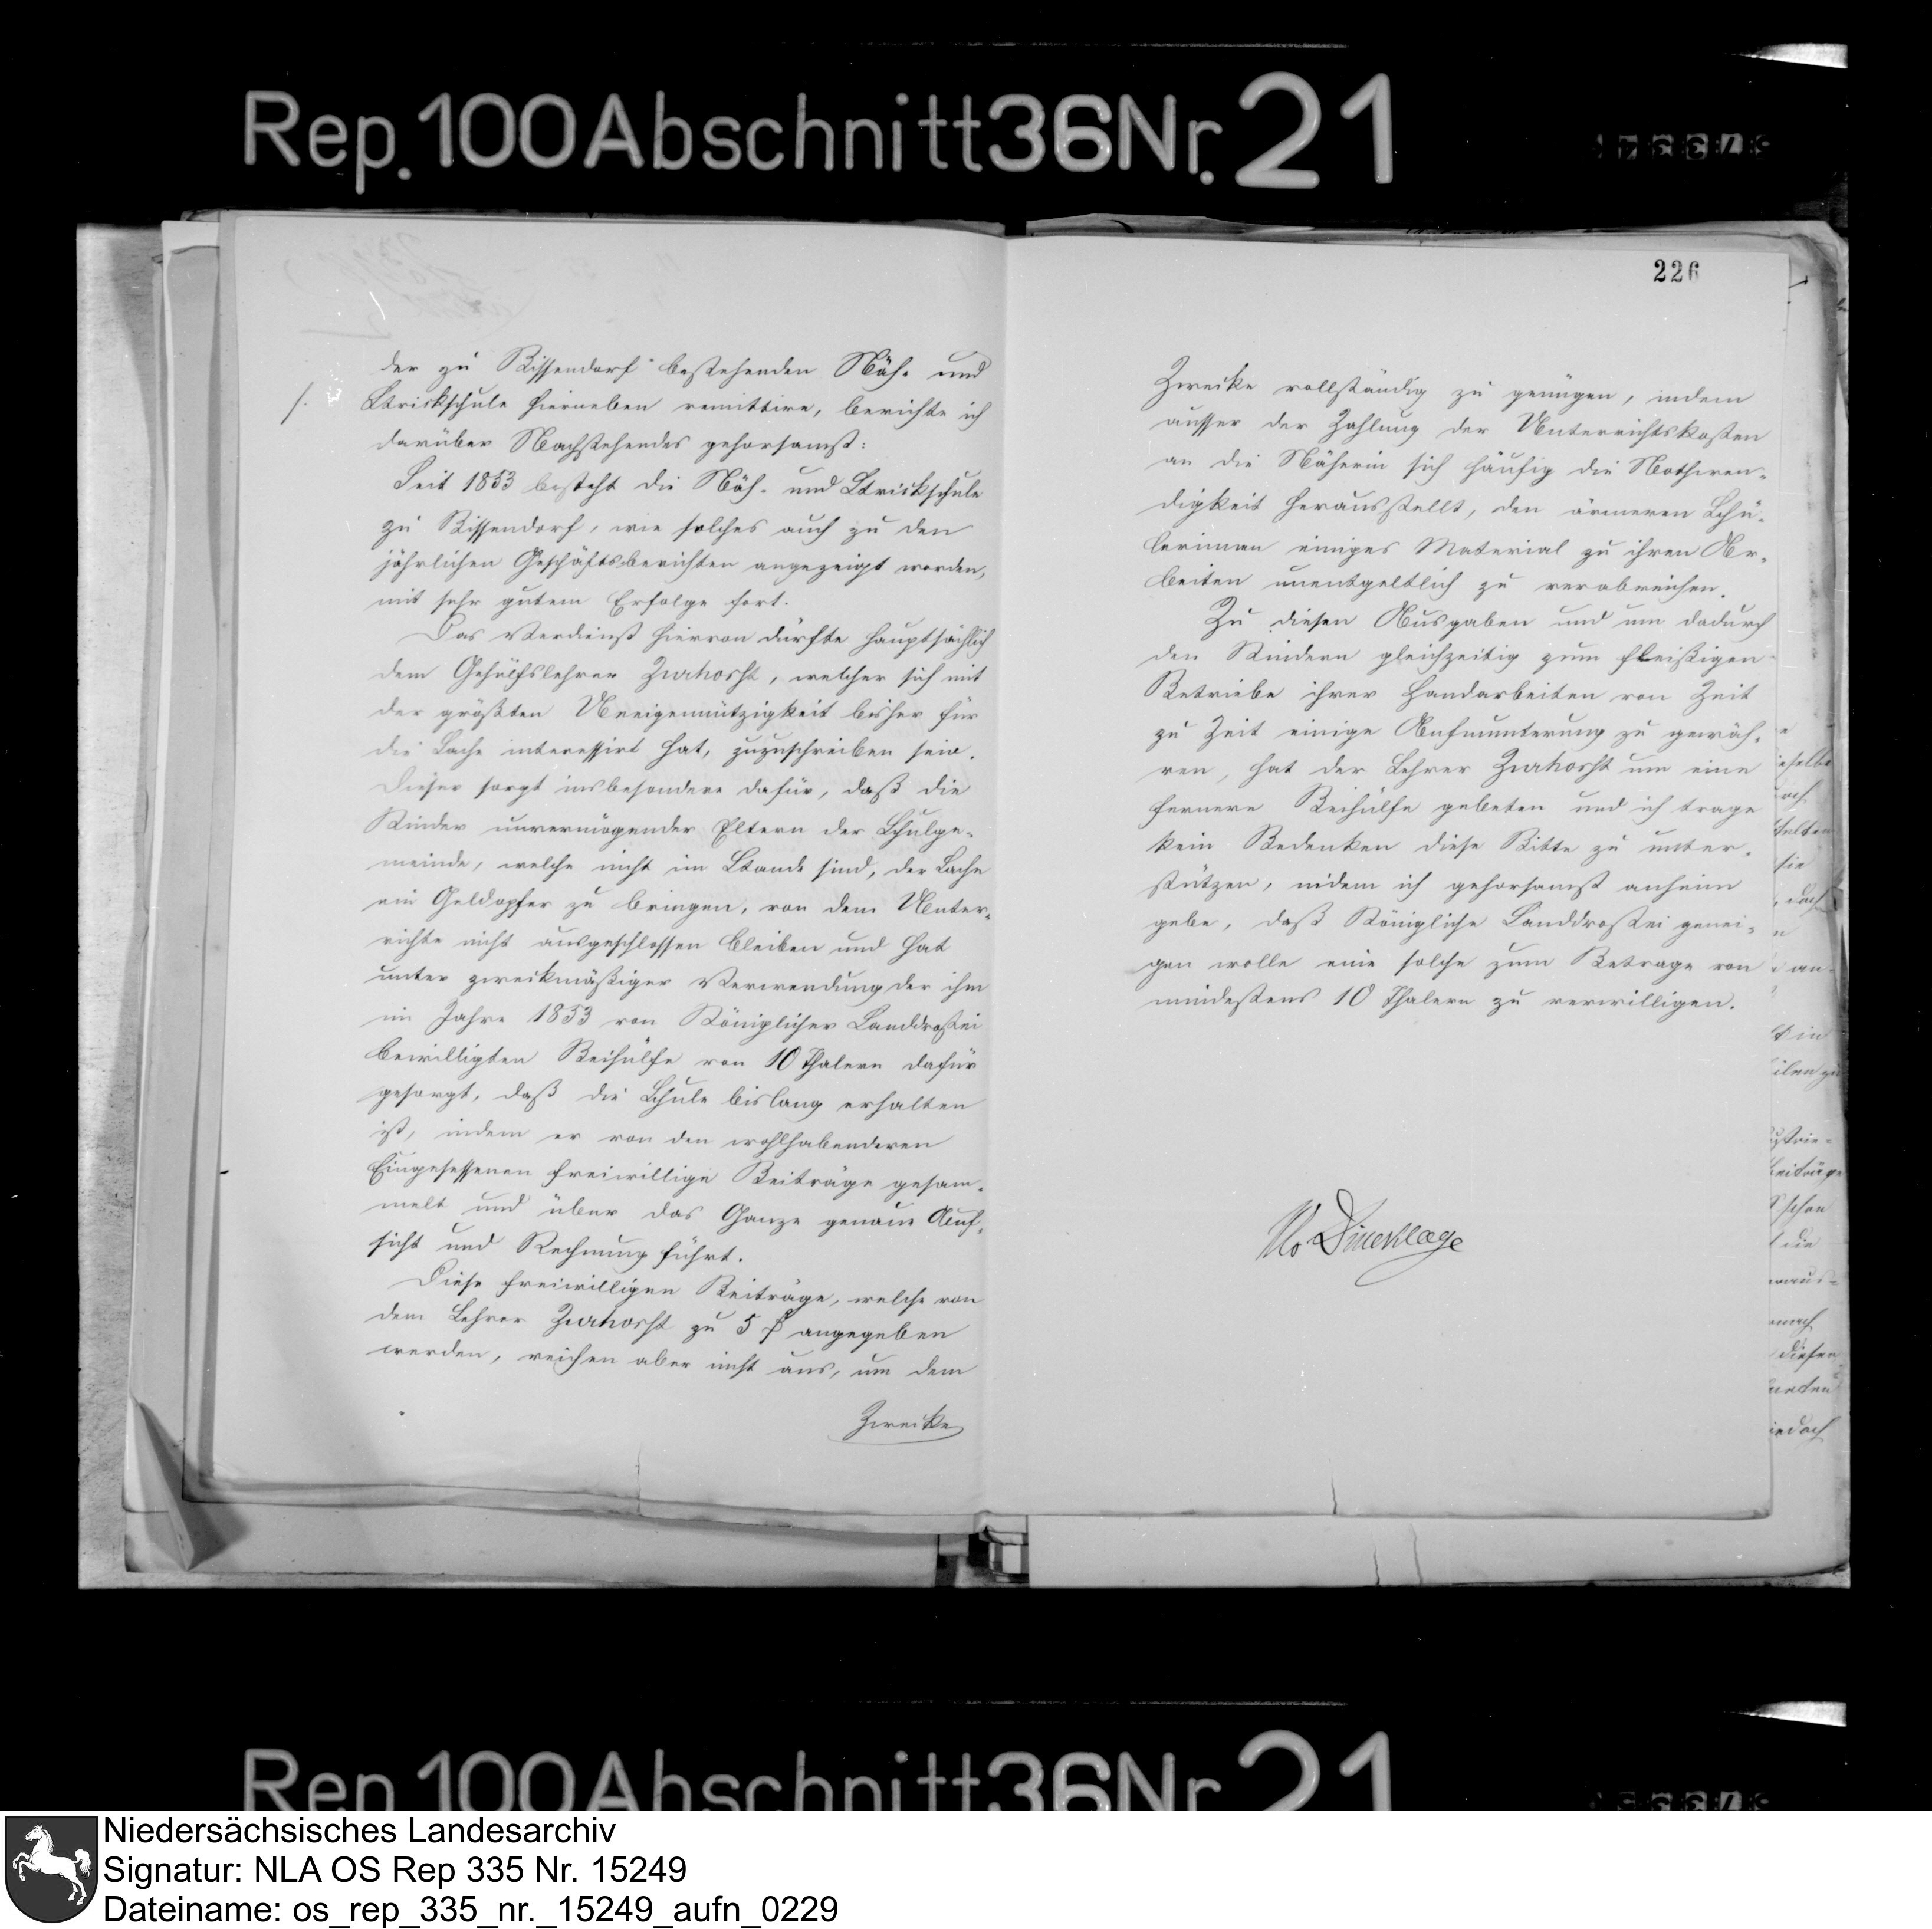 Rep. 100 Abschnitt 36 Nr. 21
der zu Bissendorf bestehenden Näh- und
/. Strickschule hierneben remittire, berichte ich
darüber Nachstehendes gehorsamst:
Seit 1853 besteht die Näh- und Strickschule
zu Bissendorf, wie solches auch zu den
jährlichen Geschäftsberichten angezeigt worden,
mit sehr gutem Erfolge fort.
Das Verdienst hiervon dürfte hauptsächlich
dem Gehülfslehrer Zurhorst, welcher sich mit
der größten Uneigennützigkeit bisher für
die Sache interessirt hat, zuzuschreiben sein.
Dieser sorgt insbesondere dafür, daß die
Kinder unvermögender Eltern der Schulge-
meinde, welche nicht im Stande sind, der Sache
ein Geldopfer zu bringen, von dem Unter-
richte nicht ausgeschlossen bleiben und hat
unter zweckmäßiger Verwendung der ihm
im Jahre 1853 von Königlicher Landdrostei
bewilligten Beihülfe von 10 Thalern dafür
gesorgt, daß die Schule bislang erhalten
ist, indem er von den wohlhabenderen
Eingesessenen freiwillige Beiträge gesam-
melt und über das Ganze genaue Auf-
sicht und Rechnung führt.
Diese freiwilligen Beiträge, welche von
dem Lehrer Zurhorst zu 5 ₰ angegeben
werden, reichen aber nicht aus, um dem
Zwecke
226
Zwecke vollständig zu genügen, indem
ausser der Zahlung der Unterrichtskosten
an die Näherin sich häufig die Nothwen-
digkeit herausstellt, den ärmeren Schü-
lerinnen einiges Material zu ihren Ar-
beiten unentgeltlich zu verabreichen.
Zu diesen Ausgaben und um dadurch
den Kindern gleichzeitig zum fleißigen
Betriebe ihrer Handarbeiten von Zeit
zu Zeit einige Aufmunterung zu gewäh-
ren, hat der Lehrer Zurhorst um eine
fernere Beihülfe gebeten und ich trage
kein Bedenken diese Bitte zu unter-
stützen, indem ich gehorsamst anheim
gebe, daß Königliche Landdrostei genei-
gen wolle eine solche zum Betrage von
mindestens 10 Thalern zu verwilligen.
Dincklage
Rep. 100 Abschnitt 36 Nr. 21
Niedersächsisches Landesarchiv
Signatur: NLA OS Rep 335 Nr. 15249
Dateiname: os_rep_335_nr._15249_aufn_0229